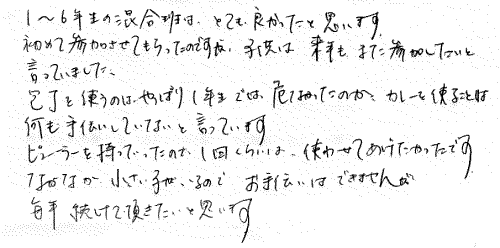 1～6年生の混合班は、とても良かったと思います。
初めて参加させてもらったのですが、子供は 来年も また参加したいと
言っていました。
包丁を使うのは、やっぱり1年生では、危なかったのか、カレーを使ることは
何も手伝いしていないと言っています
ピューラーを持っていったので、1回くらいは、使わせてあげたかったです
なかなか 小さい子がいるので お手伝いは できませんが
毎年 続けて頂きたいと思います